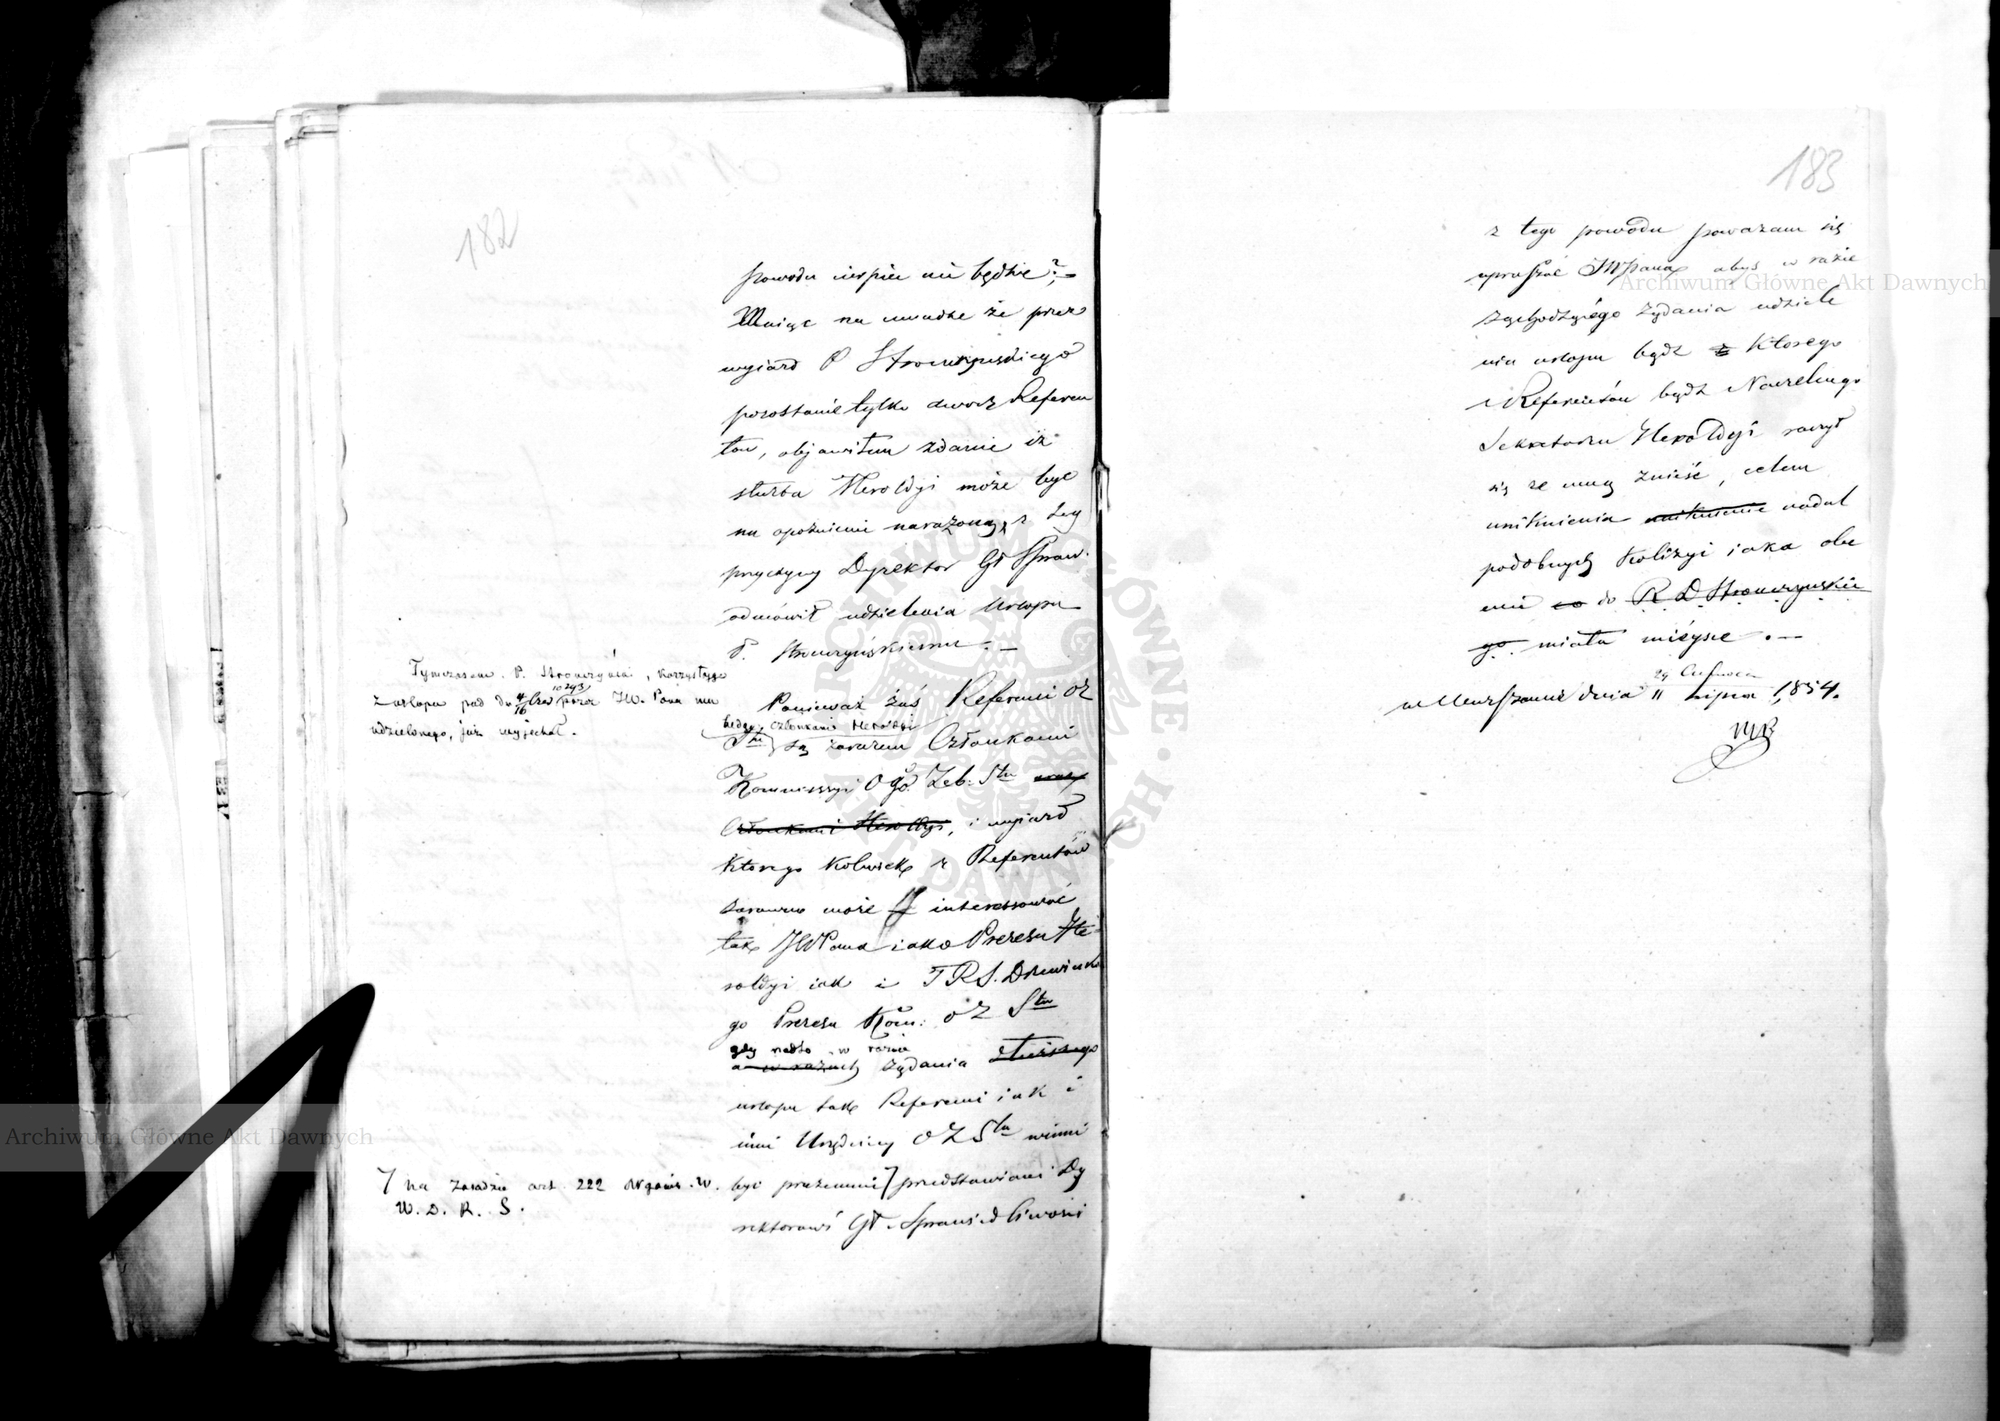 182
powodu cierpieć nie będzie?
Maiąc na uwadze że przez
wyiazd P Stronczyńskiego
pozostanie tylko dwóch Referen
tow, objawiłem zdanie iż
służba Heroldyi może być
na opoźnienie narażoną, z tey
przyczyny Dyrektor Gł Spraw.
odmówił udzielenia Urlopu
P. Stronczyńskiemu. —
Tymczasem P. Stronczyński, korzystając
z urlopu pod d. 4/16 Nro 10293 przez JW. Pana mu
udzielonego, już wyjechał.
Ponieważ zaś Referenci OZ
będąc Członkami Heroldyi
Stu są zarazem Członkami
Kommissyi Ogó. Zeb: Stu
Członkami Heroldyi, i wyiazd
ktorego kolwiek z Referentów
zarowno może interessować
tak JWPana iako Prezesa He
roldyi iak i TRS. Drewieckie
go Prezesa Kom: OZ Stu
gdy nadto w razie
a w razach żądania
urlopu tak Referenci iak i
inni Urzędnicy OZStu winni
być przezemnie przedstawiani Dy
rektorowi Gł Sprawiedliwości
na zasadzie art. 222 Organiz. W.
W. D. R. S.
183
z tego powodu poważam się
upraszać JWPana abyś w razie
zachodzącego żądania udziele
nia urlopu bądź z ktorego
z Referentów bądź Naczelnego
Sekretarza Heroldyi raczył
się ze mną znieść, celem
uniknienia uniknienie nadal
podobnych kolizyi iaka obe
cnie co do R. D. Stronczyńskie
go miała mieysce. —
29 Czerwca
w Warszawie dnia 11 Lipca 1854.
Archiwum Główne Akt Dawnych
Archiwum Główne Akt Dawnych
ARCHIWUM GŁÓWNE AKT DAWNYCH